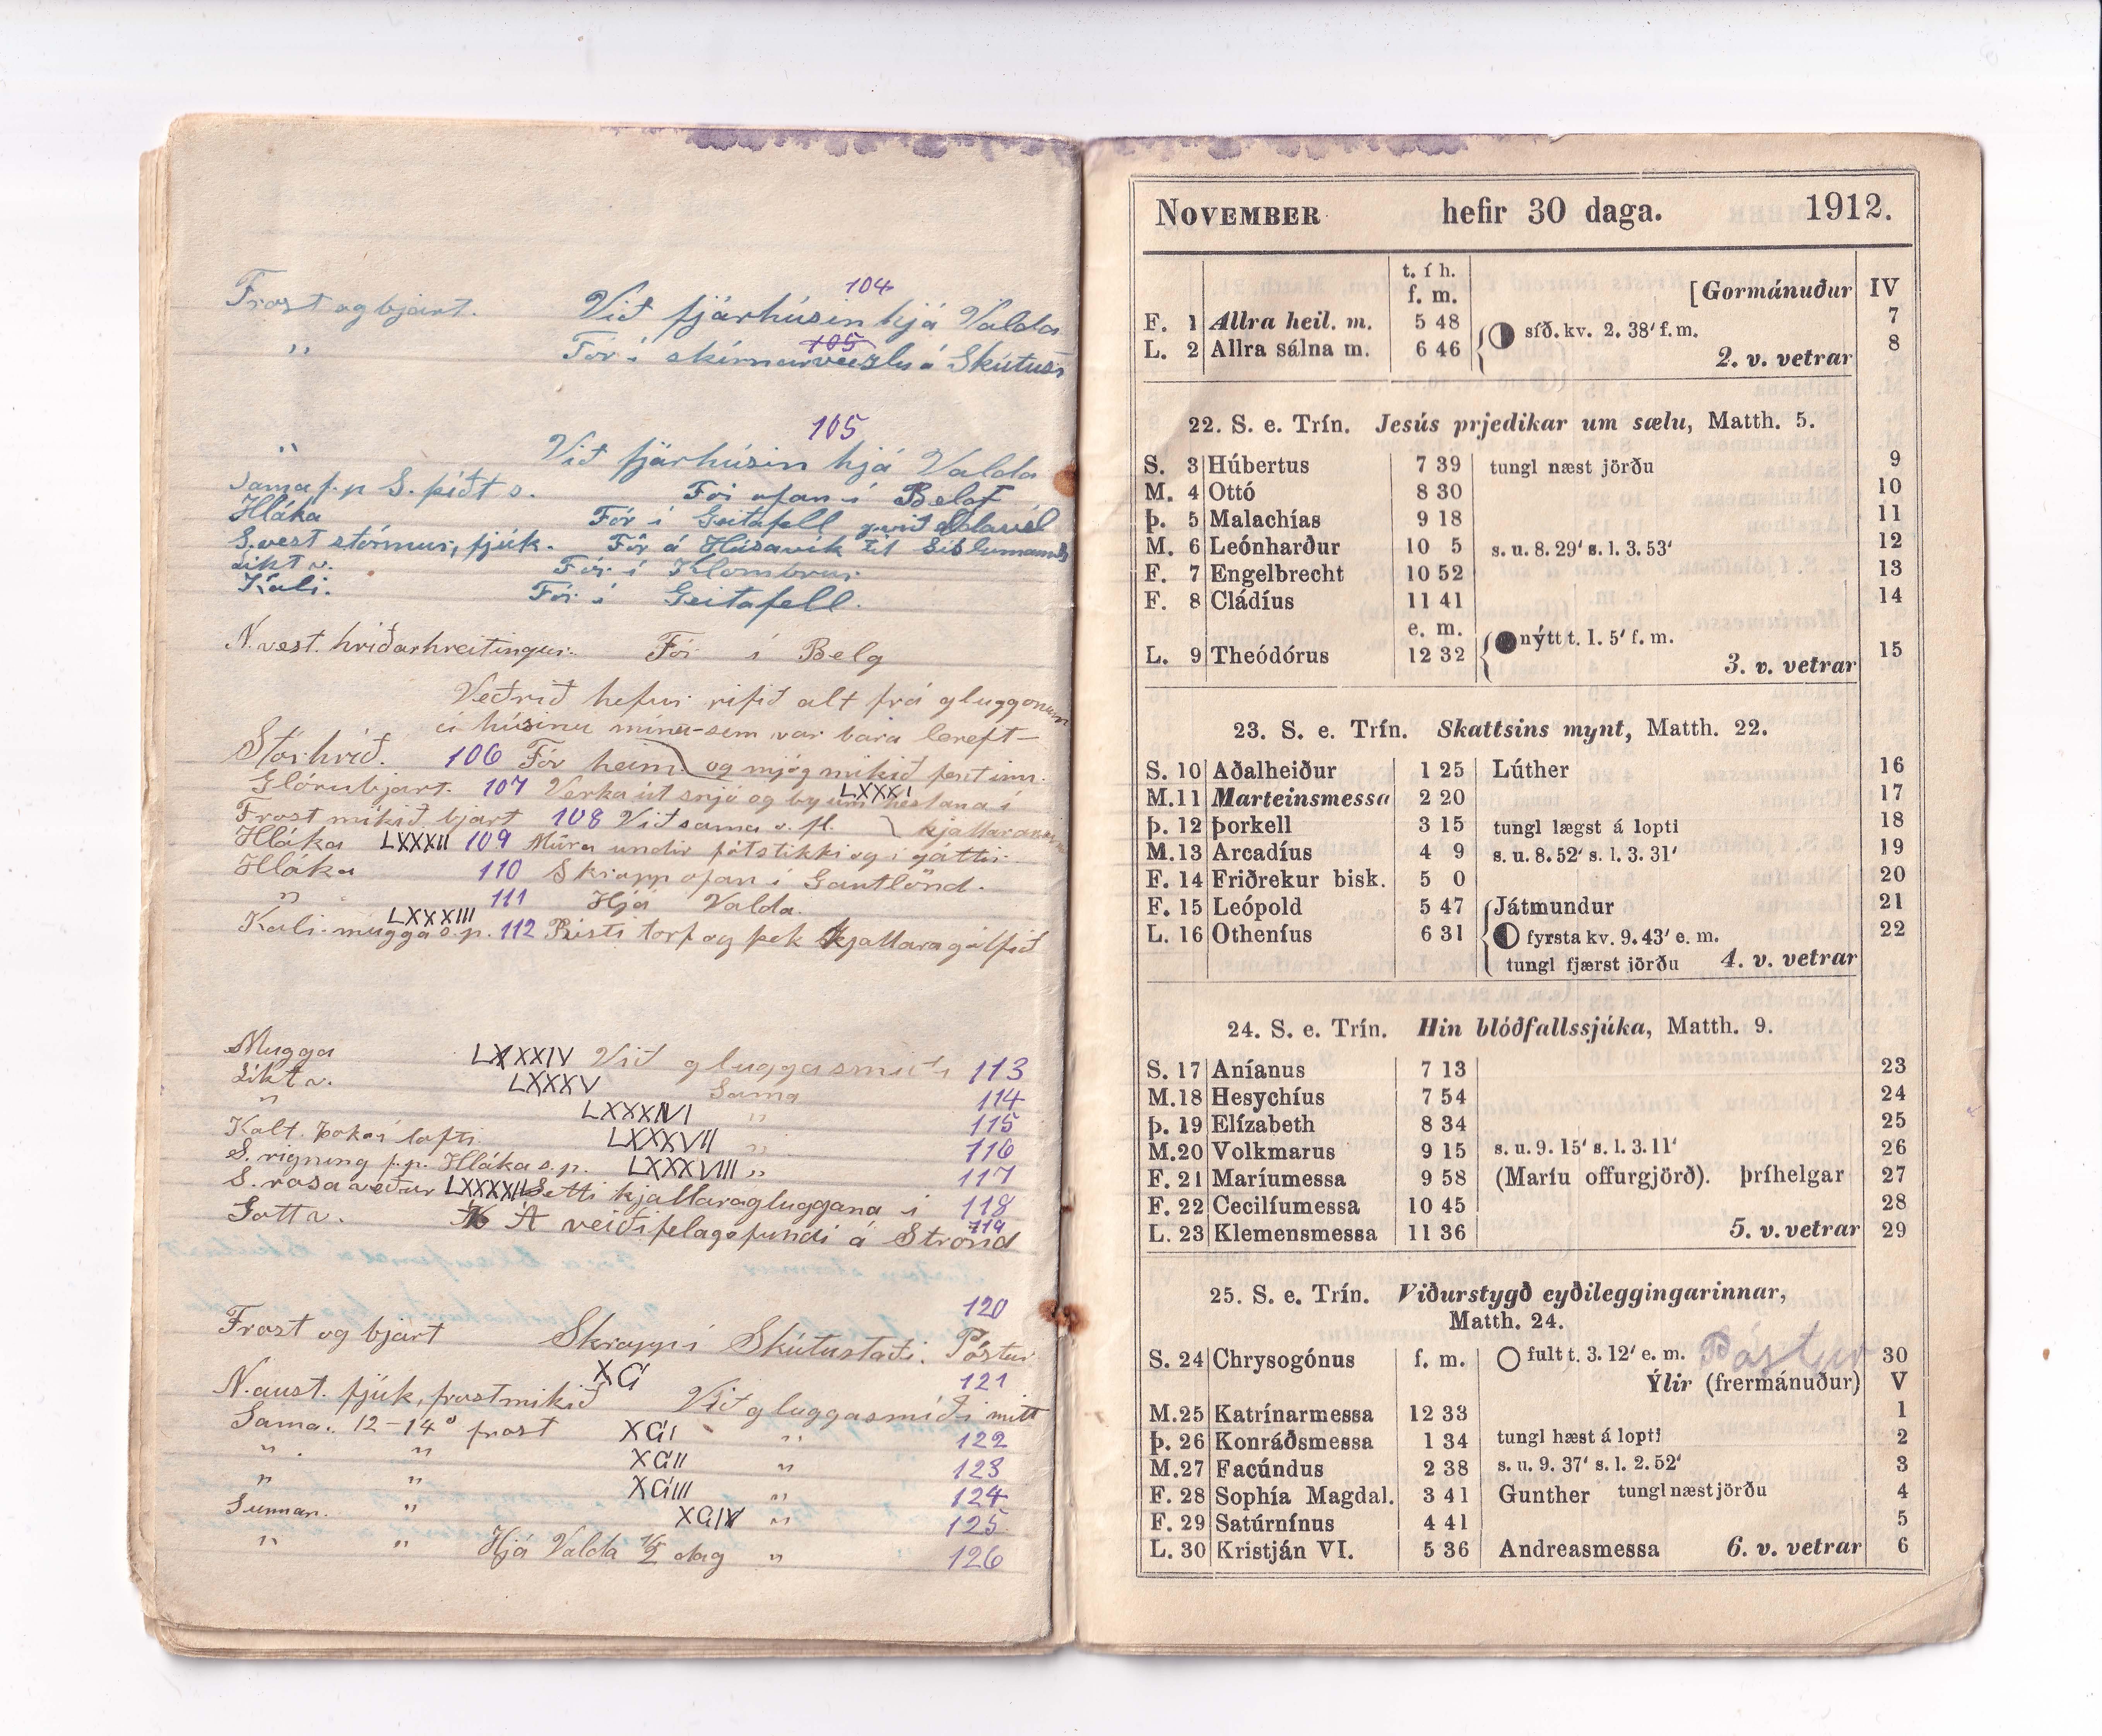 104
Frost og bjart. Við fjárhúsin hjá Valda
105
" Fór í skírnarveizlu á Skútus
105
" Við fjárhúsin hjá Valda
Sama f.p S. þíðt s. Fór ofan í Belg
Hláka Fór í Geitafell
S.vest stormur, fjúk. Fór á Húsavík til
Líkt v. Fór í Klömbrur
Kali. Fór í Geitafell.
N.vest. hríðarhreitingur. Fór í Belg
Veðrið hefur rifið alt frá gluggonum
á húsinu mínu - sem var bara léreft -
Stórhríð. 106 Fór heim og mjög mikið fent inn.
LXXXI
Glórubjart. 107 Verka út snjó og byum hestana í
Frost mikið bjart 108 Við sama s. fl. kjallaranum
Hláka LXXXII 109 Múra undir fótstikki og í gáttir
Hláka 110 Skrapp ofan í Gautlönd.
" 111 Hjá Valda.
LXXXIII
Kali-mugga s.p. 112 Risti torf og þek kjallaragólfið
Mugga LXXXIV Við gluggasmíði 113
Líkt v. LXXXV Sama 114
" LXXXVI " 115
Kalt. Þoka í lofti. LXXXVII " 116
S. rigning f.p. Hláka s.p. LXXXVIII " 117
S. rosaveður Setti kjallaragluggana í 118
Gott v. Á veiðifelagsfundi á Strönd 119
120
Frost og bjart Skrapp í Skútustaði. Póstur
XC 121
N.aust. fjúk, frostmikið Við gluggasmíði mitt
Sama. 12-14° frost XCI " 122
" " XCII " 123
" " XCIII " 124
Sunnan. " XCIV " 125
" " Hjá Valda 1/2 dag " 126
NOVEMBER hefir 30 daga. 1912.
t. í h.
f. m. [Gormánuður IV
F. 1 Allra heil. m. 5 48 síð. kv. 2. 38' f. m. 7
L. 2 Allra sálna m. 6 46 2. v. vetrar 8
22. S. e. Trín. Jesús prjedikar um sælu, Matth. 5.
S. 3 Húbertus 7 39 tungl næst jörðu 9
M. 4 Ottó 8 30 10
Þ. 5 Malachías 9 18 11
M. 6 Leónharður 10 5 s. u. 8. 29' s. l. 3. 53' 12
F. 7 Engelbrecht 10 52 13
F. 8 Cládíus 11 41 14
e. m. nýtt t. 1. 5' f. m.
L. 9 Theódórus 12 32 3. v. vetrar 15
23. S. e. Trín. Skattsins mynt, Matth. 22.
S. 10 Aðalheiður 1 25 Lúther 16
M. 11 Marteinsmessa 2 20 17
Þ. 12 Þorkell 3 15 tungl lægst á lopti 18
M. 13 Arcadíus 4 9 s. u. 8. 52' s. l. 3. 31' 19
F. 14 Friðrekur bisk. 5 0 20
F. 15 Leópold 5 47 Játmundur 21
L. 16 Otheníus 6 31 fyrsta kv. 9. 43' e. m. 22
tungl fjærst jörðu 4. v. vetrar
24. S. e. Trín. Hin blóðfallssjúka, Matth. 9.
S. 17 Aníanus 7 13 23
M. 18 Hesychíus 7 54 24
Þ. 19 Elízabeth 8 34 25
M. 20 Volkmarus 9 15 s. u. 9. 15' s. l. 3. 11' 26
F. 21 Maríumessa 9 58 (Maríu offurgjörð). Þríhelgar 27
F. 22 Cecilíumessa 10 45 28
L. 23 Klemensmessa 11 36 5. v. vetrar 29
25. S. e. Trín. Viðurstygð eyðileggingarinnar,
Matth. 24.
S. 24 Chrysogónus f. m. fult t. 3. 12' e. m. Póstur 30
Ýlir (frermánuður) V
M. 25 Katrínarmessa 12 33 1
Þ. 26 Konráðsmessa 1 34 tungl hæst á lopti 2
M. 27 Facúndus 2 38 s. u. 9. 37' s. l. 2. 52' 3
F. 28 Sophía Magdal. 3 41 Gunther tungl næst jörðu 4
F. 29 Satúrnínus 4 41 5
L. 30 Kristján VI. 5 36 Andreasmessa 6. v. vetrar 6